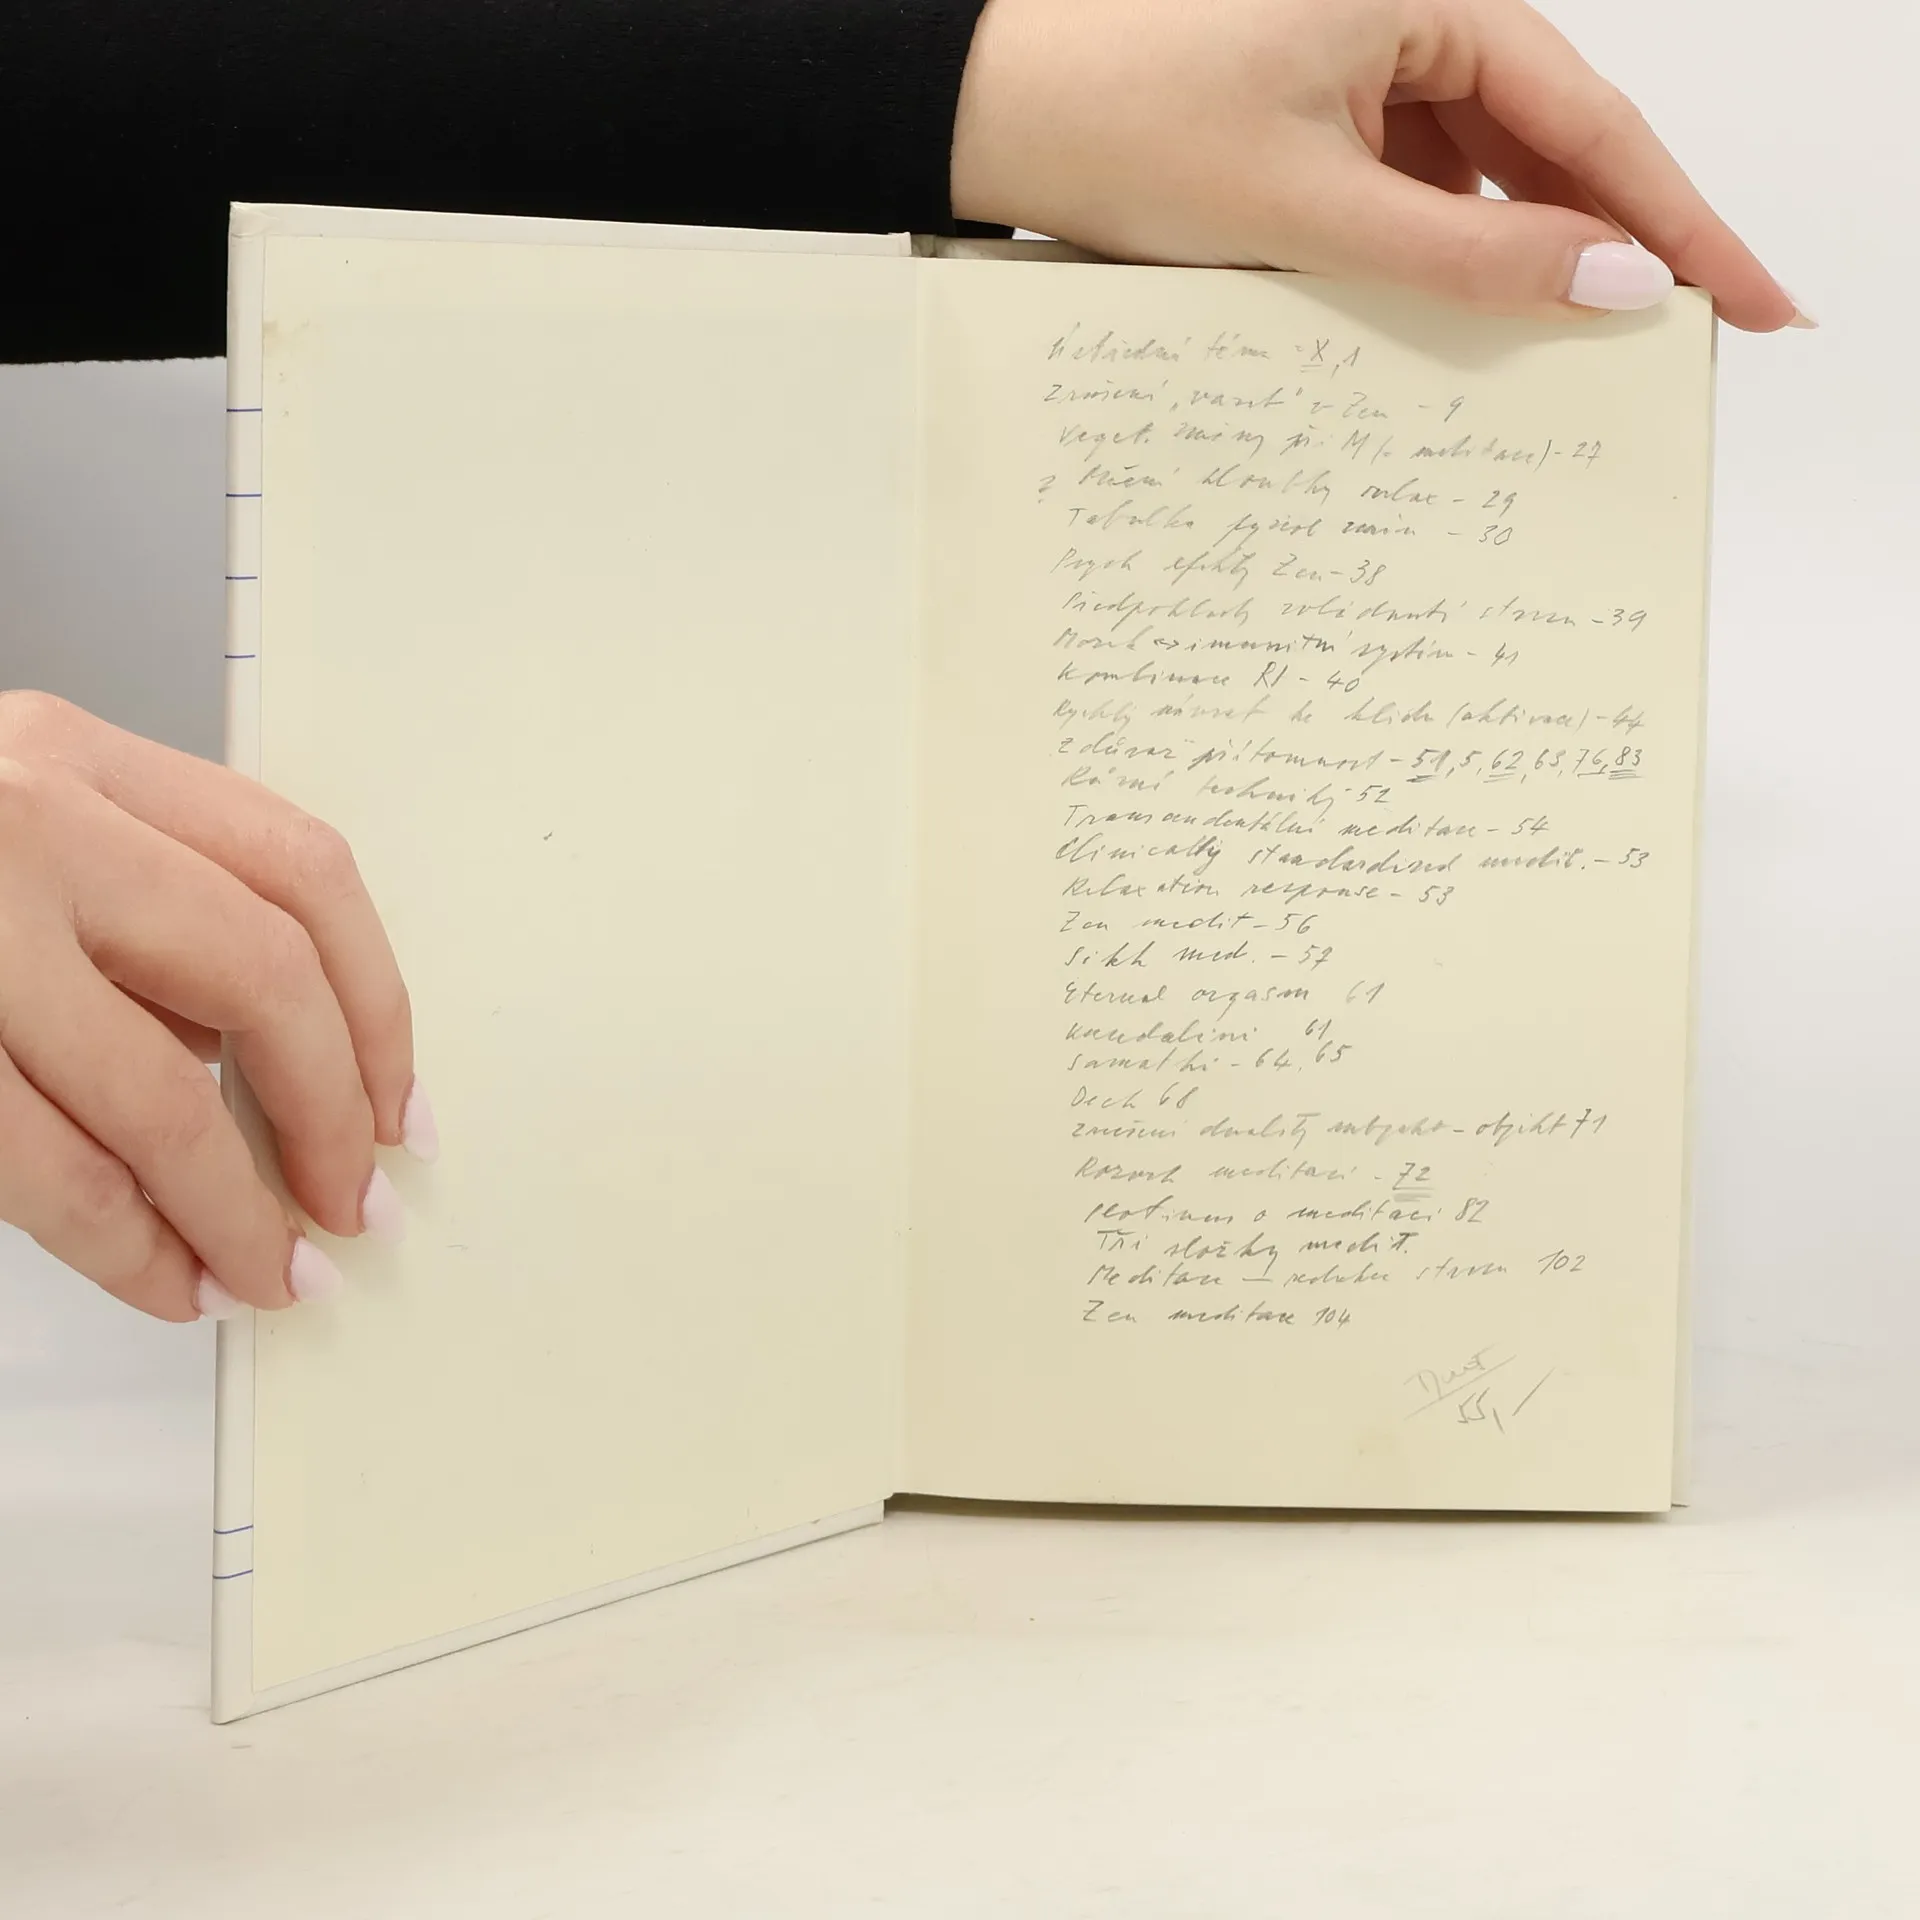 Ústřední téma - X, 1
Zrušení „ " v Zen - 9
Veget. změny při M (= meditace) - 27
? Měření hloubky relax - 29
Tabulka fysiol změn - 30
Psych efekty Zen - 38
Předpoklady zvládnutí stresu - 39
Mozek ↔ imunitní systém - 41
Kombinace RI - 40
Rychlý návrat ke klidu (aktivace) - 44
Zdůraz přítomnost - 51, 5, 62, 63, 76, 83
Různé techniky 52
Transcendentální meditace - 54
Clinically standardized medit. - 53
Relaxation response - 53
Zen medit - 56
Sikh med. - 57
Eternal orgasm 61
Kundalini 61
Samathi - 64, 65
Dech 68
zrušení duality subjekt - objekt 71
Rozvoh meditací - 72
o meditaci 82
Tři složky medit.
Meditace — redukce stresu 102
Zen meditace 104
55,